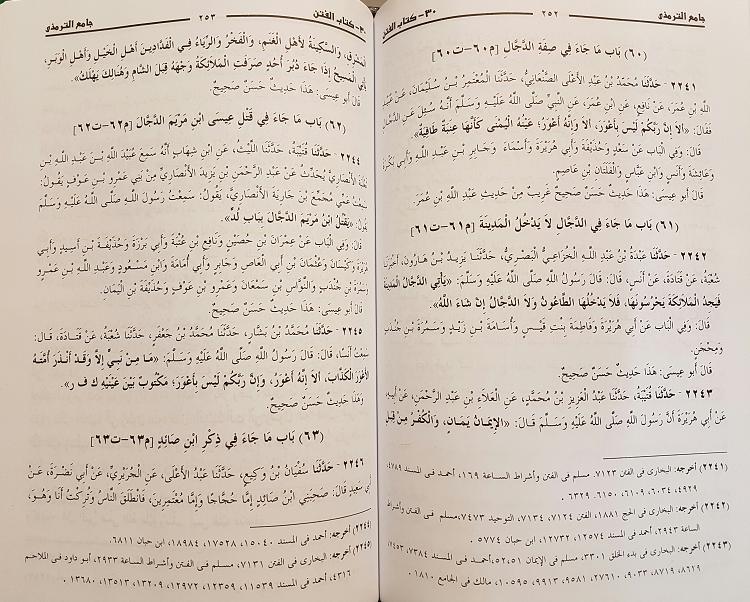 جامع الترمذى ٢٥٢ ٣٠- كتاب الفتن
(٦٠) بَاب مَا جَاءَ فِي صِفَةِ الدَّجَّالِ [م٦٠-ت٦٠]
٢٢٤١ - حَدَّثَنَا مُحَمَّدُ بْنُ عَبْدِ الأَعْلَى الصَّنْعَانِيُّ، حَدَّثَنَا الْمُعْتَمِرُ بْنُ سُلَيْمَانَ، عَنْ عُبَيْدِ
اللَّهِ بْنِ عُمَرَ، عَنْ نَافِعٍ، عَنِ ابْنِ عُمَرَ، عَنِ النَّبِيِّ صَلَّى اللَّهُ عَلَيْهِ وَسَلَّمَ أَنَّهُ سُئِلَ عَنِ الدَّجَّالِ
فَقَالَ: «أَلاَ إِنَّ رَبَّكُمْ لَيْسَ بِأَعْوَرَ، أَلاَ وَإِنَّهُ أَعْوَرُ، عَيْنُهُ الْيُمْنَى كَأَنَّهَا عِنَبَةٌ طَافِيَةٌ».
قَالَ: وَفِي الْبَاب عَنْ سَعْدٍ وَحُذَيْفَةَ وَأَبِي هُرَيْرَةَ وَأَسْمَاءَ وَجَابِرِ بْنِ عَبْدِ اللَّهِ وَأَبِي بَكْرَةَ
وَعَائِشَةَ وَأَنَسٍ وَابْنِ عَبَّاسٍ وَالْفَلَتَانِ بْنِ عَاصِمٍ.
قَالَ أَبو عِيسَى: هَذَا حَدِيثٌ حَسَنٌ صَحِيحٌ غَرِيبٌ مِنْ حَدِيثِ عَبْدِ اللَّهِ بْنِ عُمَرَ.
(٦١) بَاب مَا جَاءَ فِي الدَّجَّالِ لاَ يَدْخُلُ الْمَدِينَةَ [م٦١-ت٦١]
٢٢٤٢ - حَدَّثَنَا عَبْدَةُ بْنُ عَبْدِ اللَّهِ الْخُزَاعِيُّ الْبَصْرِيُّ، حَدَّثَنَا يَزِيدُ بْنُ هَارُونَ، أَخْبَرَنَا
شُعْبَةُ، عَنْ قَتَادَةَ، عَنْ أَنَسٍ، قَالَ: قَالَ رَسُولُ اللَّهِ صَلَّى اللَّهُ عَلَيْهِ وَسَلَّمَ: «يَأْتِي الدَّجَّالُ الْمَدِينَةَ
فَيَجِدُ الْمَلاَئِكَةَ يَحْرُسُونَهَا، فَلاَ يَدْخُلُهَا الطَّاعُونُ وَلاَ الدَّجَّالُ إِنْ شَاءَ اللَّهُ».
قَالَ: وَفِي الْبَاب عَنْ أَبِي هُرَيْرَةَ وَفَاطِمَةَ بِنْتِ قَيْسٍ وَأُسَامَةَ بْنِ زَيْدٍ وَسَمُرَةَ بْنِ جُنْدَبٍ
وَمِحْجَنٍ.
قَالَ أَبو عِيسَى: هَذَا حَدِيثٌ حَسَنٌ صَحِيحٌ.
٢٢٤٣ - حَدَّثَنَا قُتَيْبَةُ، حَدَّثَنَا عَبْدُ الْعَزِيزِ بْنُ مُحَمَّدٍ، عَنِ الْعَلاَءِ بْنِ عَبْدِ الرَّحْمَنِ، عَنْ أَبِيهِ،
عَنْ أَبِي هُرَيْرَةَ أَنَّ رَسُولَ اللَّهِ صَلَّى اللَّهُ عَلَيْهِ وَسَلَّمَ قَالَ: «الإِيمَانُ يَمَانٍ، وَالْكُفْرُ مِنْ قِبَلِ
(٢٢٤١) أخرجه: البخارى فى الفتن ٧١٢٣. مسلم فى الفتن وأشراط الساعة ١٦٩، أحمد فى المسند ٤٧٨٩
٤٩٢٩، ٦٠٣٤، ٦١٠٩، ٦١٥٠، ٦٣٢٩.
(٢٢٤٢) أخرجه: البخارى فى الحج ١٨٨١، الفتن ٧١٢٤، ٧١٣٤، التوحيد ٧٤٧٣، مسلم فى الفتن وأشراط
الساعة ٢٩٤٣، أحمد فى المسند ١٢٥٧٤، ١٢٧٣٢، ابن حبان ٥٧٧٤.
(٢٢٤٣) أخرجه: البخارى فى بدء الخلق ٣٣٠١، مسلم فى الإيمان ٥٢،٥١، أحمد فى المسند ٧٣٨٤، ٧٤٥٣
٨٦٢٩، ٨٧١٩، ٩٠٣٣، ٢٧٦١٠، ٩٥٨١، ٩٩١٣، ١٠٥٩٥، مالك فى الجامع ١٨١٠.
٣٠- كتاب الفتن ٢٥٣ جامع الترمذى
الْمَشْرِقِ، وَالسَّكِينَةُ لأَهْلِ الْغَنَمِ، وَالْفَخْرُ وَالرِّيَاءُ فِي الْفَدَّادِينَ أَهْلِ الْخَيْلِ وَأَهْلِ الْوَبَرِ،
يَأْتِي الْمَسِيحُ إِذَا جَاءَ دُبُرَ أُحُدٍ صَرَفَتِ الْمَلاَئِكَةُ وَجْهَهُ قِبَلَ الشَّامِ وَهُنَالِكَ يَهْلَكُ».
قَالَ أبو عِيسَى: هَذَا حَدِيثٌ حَسَنٌ صَحِيحٌ.
(٦٢) بَاب مَا جَاءَ فِي قَتْلِ عِيسَى ابْنِ مَرْيَمَ الدَّجَّالَ [م٦٢-ت٦٢]
٢٢٤٤ - حَدَّثَنَا قُتَيْبَةُ، حَدَّثَنَا اللَّيْثُ، عَنِ ابْنِ شِهَابٍ أَنَّهُ سَمِعَ عُبَيْدَ اللَّهِ بْنَ عَبْدِ اللَّهِ بْنِ
ثَعْلَبَةَ الأَنْصَارِيَّ يُحَدِّثُ عَنْ عَبْدِ الرَّحْمَنِ بْنِ يَزِيدَ الأَنْصَارِيِّ مِنْ بَنِي عَمْرِو بْنِ عَوْفٍ يَقُولُ:
سَمِعْتُ عَمِّي مُجَمِّعَ بْنَ جَارِيَةَ الأَنْصَارِيَّ، يَقُولُ: سَمِعْتُ رَسُولَ اللَّهِ صَلَّى اللَّهُ عَلَيْهِ وَسَلَّمَ
يَقُولُ: «يَقْتُلُ ابْنُ مَرْيَمَ الدَّجَّالَ بِبَابِ لُدٍّ».
قَالَ: وَفِي الْبَاب عَنْ عِمْرَانَ بْنِ حُصَيْنٍ وَنَافِعِ بْنِ عُتْبَةَ وَأَبِي بَرْزَةَ وَحُذَيْفَةَ بْنِ أَسِيدٍ وَأَبِي
هُرَيْرَةَ وَكَيْسَانَ وَعُثْمَانَ بْنِ أَبِي الْعَاصِ وَجَابِرٍ وَأَبِي أُمَامَةَ وَابْنِ مَسْعُودٍ وَعَبْدِ اللَّهِ بْنِ عَمْرٍو
وَسَمُرَةَ بْنِ جُنْدَبٍ وَالنَّوَّاسِ بْنِ سَمْعَانَ وَعَمْرِو بْنِ عَوْفٍ وَحُذَيْفَةَ بْنِ الْيَمَانِ.
قَالَ أبو عِيسَى: هَذَا حَدِيثٌ حَسَنٌ صَحِيحٌ.
٢٢٤٥ - حَدَّثَنَا مُحَمَّدُ بْنُ بَشَّارٍ، حَدَّثَنَا مُحَمَّدُ بْنُ جَعْفَرٍ، حَدَّثَنَا شُعْبَةُ، عَنْ قَتَادَةَ، قَالَ:
سَمِعْتُ أَنَسًا، قَالَ: قَالَ رَسُولُ اللَّهِ صَلَّى اللَّهُ عَلَيْهِ وَسَلَّمَ: «مَا مِنْ نَبِيٍّ إِلاَّ وَقَدْ أَنْذَرَ أُمَّتَهُ
الأَعْوَرَ الْكَذَّابَ، أَلاَ إِنَّهُ أَعْوَرُ، وَإِنَّ رَبَّكُمْ لَيْسَ بِأَعْوَرَ؛ مَكْتُوبٌ بَيْنَ عَيْنَيْهِ ك ف ر».
وَهَذَا حَدِيثٌ حَسَنٌ صَحِيحٌ.
(٦٣) بَاب مَا جَاءَ فِي ذِكْرِ ابْنِ صَائِدٍ [م٦٣-ت٦٣]
٢٢٤٦ - حَدَّثَنَا سُفْيَانُ بْنُ وَكِيعٍ، حَدَّثَنَا عَبْدُ الأَعْلَى، عَنِ الْجُرَيْرِيِّ، عَنْ أَبِي نَضْرَةَ، عَنْ
أَبِي سَعِيدٍ قَالَ: صَحِبَنِي ابْنُ صَائِدٍ إِمَّا حُجَّاجًا وَإِمَّا مُعْتَمِرِينَ، فَانْطَلَقَ النَّاسُ وَتُرِكْتُ أَنَا وَهُوَ،
(٢٢٤٤) أخرجه: أحمد فى المسند ١٥٠٤٠، ١٧٥٢٨، ١٨٩٨٤، ابن حبان ٦٨١١.
(٢٢٤٥) أخرجه: البخارى فى الفتن ٧١٣١، مسلم فى الفتن وأشراط الساعة ٢٩٣٣، أبو داود فى الملاحم
٤٣١٦، أحمد فى المسند ١١٥٣٩، ١٢٣٥٩، ١٢٩٧٢، ١٣٢٠٩، ١٣٥١٣، ١٣٦٨٠.